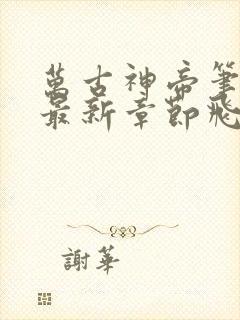 萬古神帝筆
最新章節飛
謝華